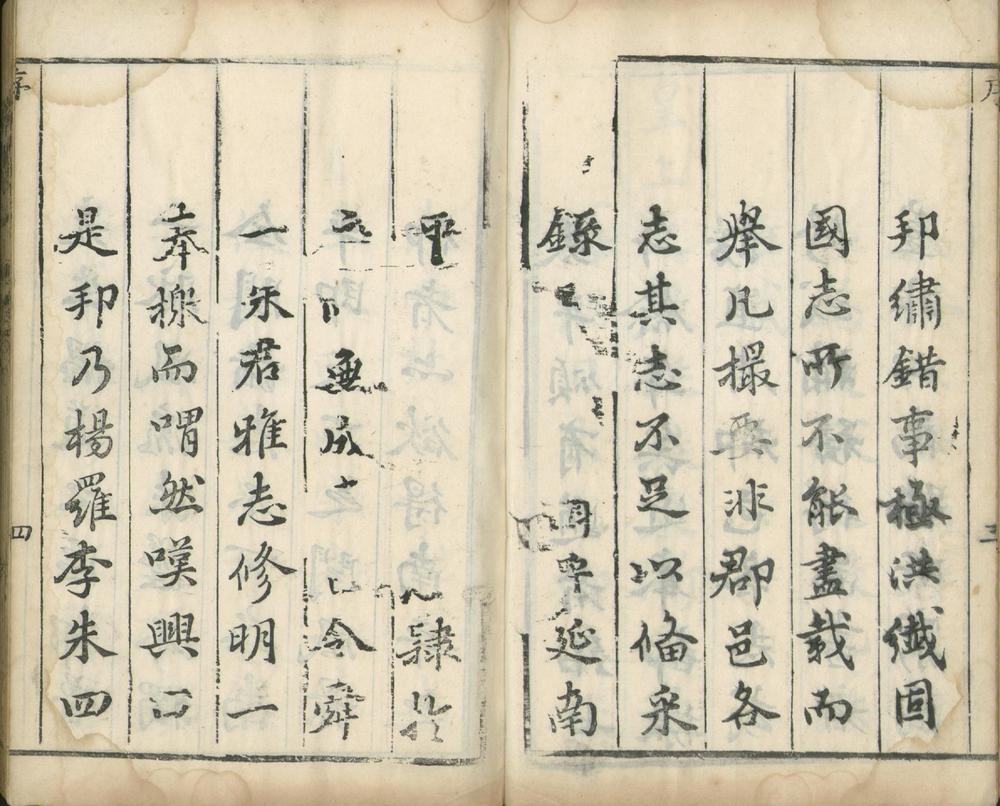 邦繡錯事極洪纖固
國志所不能盡載而
舉凡撮要非郡邑各
志其志不足以俻采
錄 延南
平 隸於
亟成 令舜
一朱君雅志修明一
奉檄而喟然嘆興曰
是邦乃楊羅李朱四
序
四